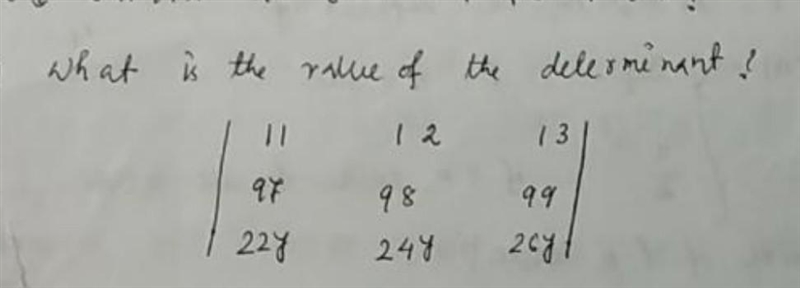 What is the value of the determinant?
11 12 13
97 98 99
22y 24y 26y